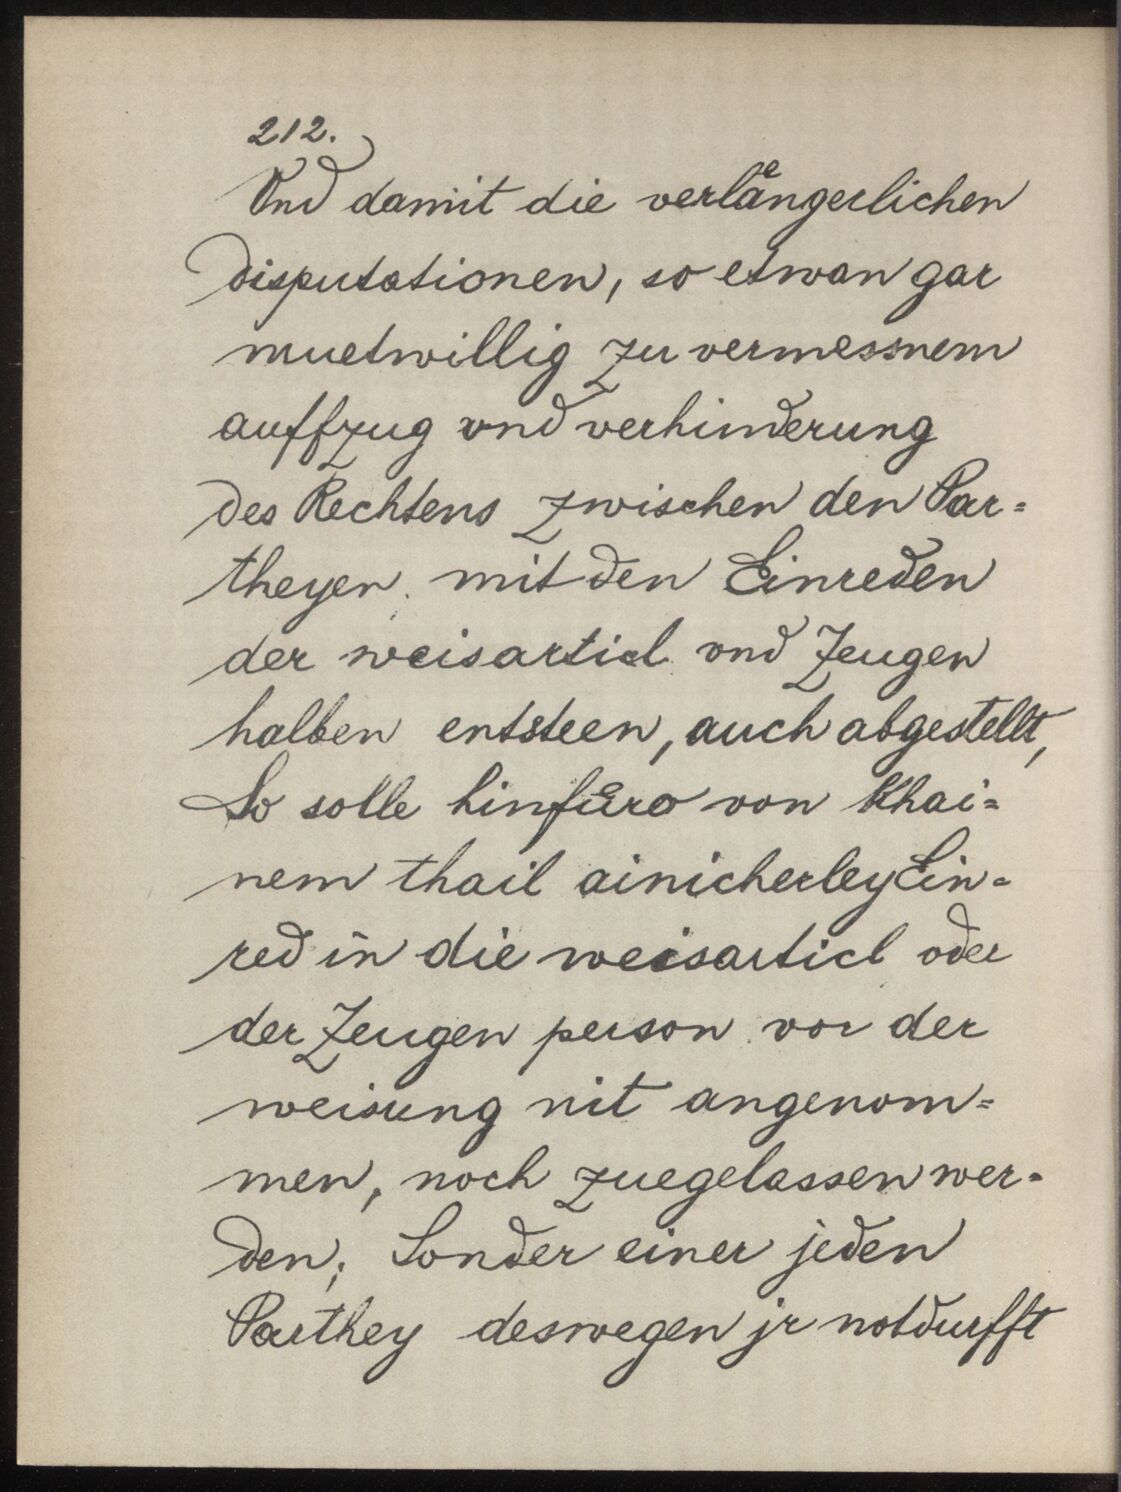 212.
Vnd damit die verlaͤngerlichen
disputationen, so etwan gar
muetwillig zu vermessnem
auffzug vnd verhinderung
des Rechtens zwischen den Par=
theyen mit den Einreden
der weisarticl vnd Zeugen
halben entsteen, auch abgestellt,
So solle hinfuͤro von khai=
nem thail ainicherley Ein=
red in die weisarticl oder
der Zeugen person vor der
weisung nit angenom=
men, noch zuegelassen wer=
den; Sonder einer jeden
Parthey deswegen jr notdurfft